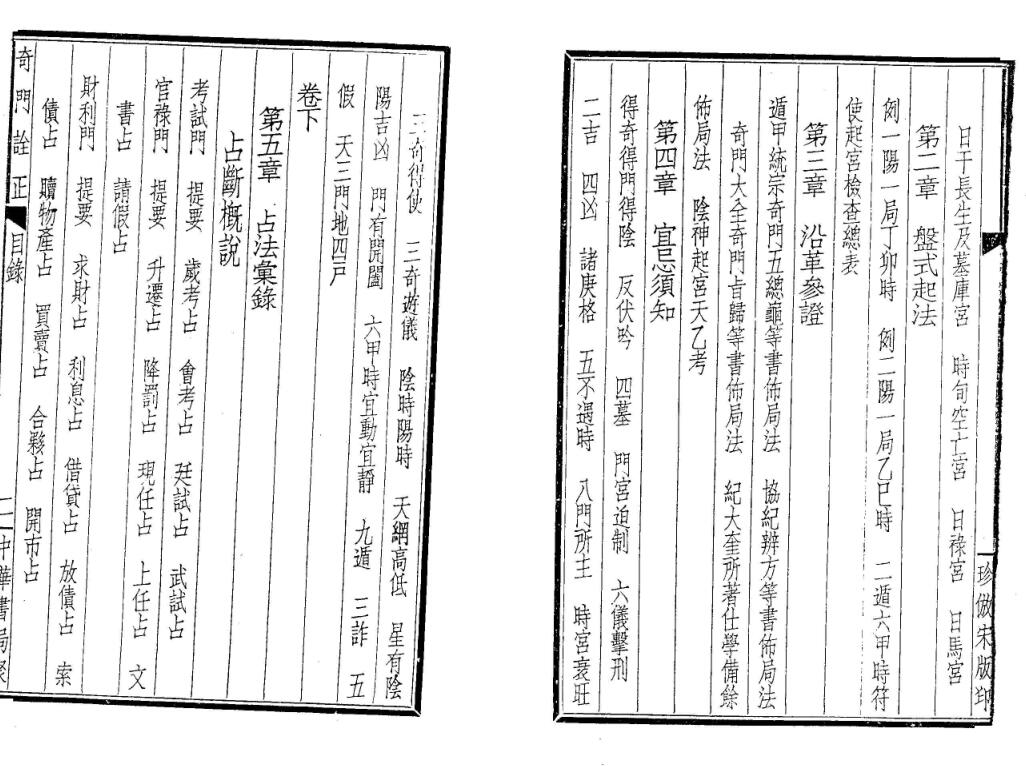 日干長生及墓庫宮　時旬空亡宮　日祿宮　日馬宮
第二章　盤式起法
例一陽一局丁卯時　例二陽一局乙巳時　二遁六甲時符
使起宮檢查總表
第三章　沿革參證
遁甲統宗奇門五總龜等書佈局法　協紀辨方等書佈局法
奇門大全奇門旨歸等書佈局法　紀大奎所著仕學備餘
佈局法　陰神起宮天乙考
第四章　宜忌須知
得奇得門得陰　反伏吟　四墓　門宮迫制　六儀擊刑
二吉　四凶　諸庚格　五不遇時　八門所主　時宮衰旺
珍倣宋版印
三奇得使　三奇遊儀　陰時陽時　天網高低　星有陰
陽吉凶　門有開闔　六甲時宜動宜靜　九遁　三詐　五
假　天三門地四戶
卷下
第五章　占法彙錄
占斷概說
考試門　提要　歲考占　會考占　廷試占　武試占
官祿門　提要　升遷占　降罰占　現任占　上任占　文
書占　請假占
財利門　提要　求財占　利息占　借貸占　放債占　索
債占　贖物產占　買賣占　合夥占　開市占
奇門詮正　目錄　二　中華書局聚